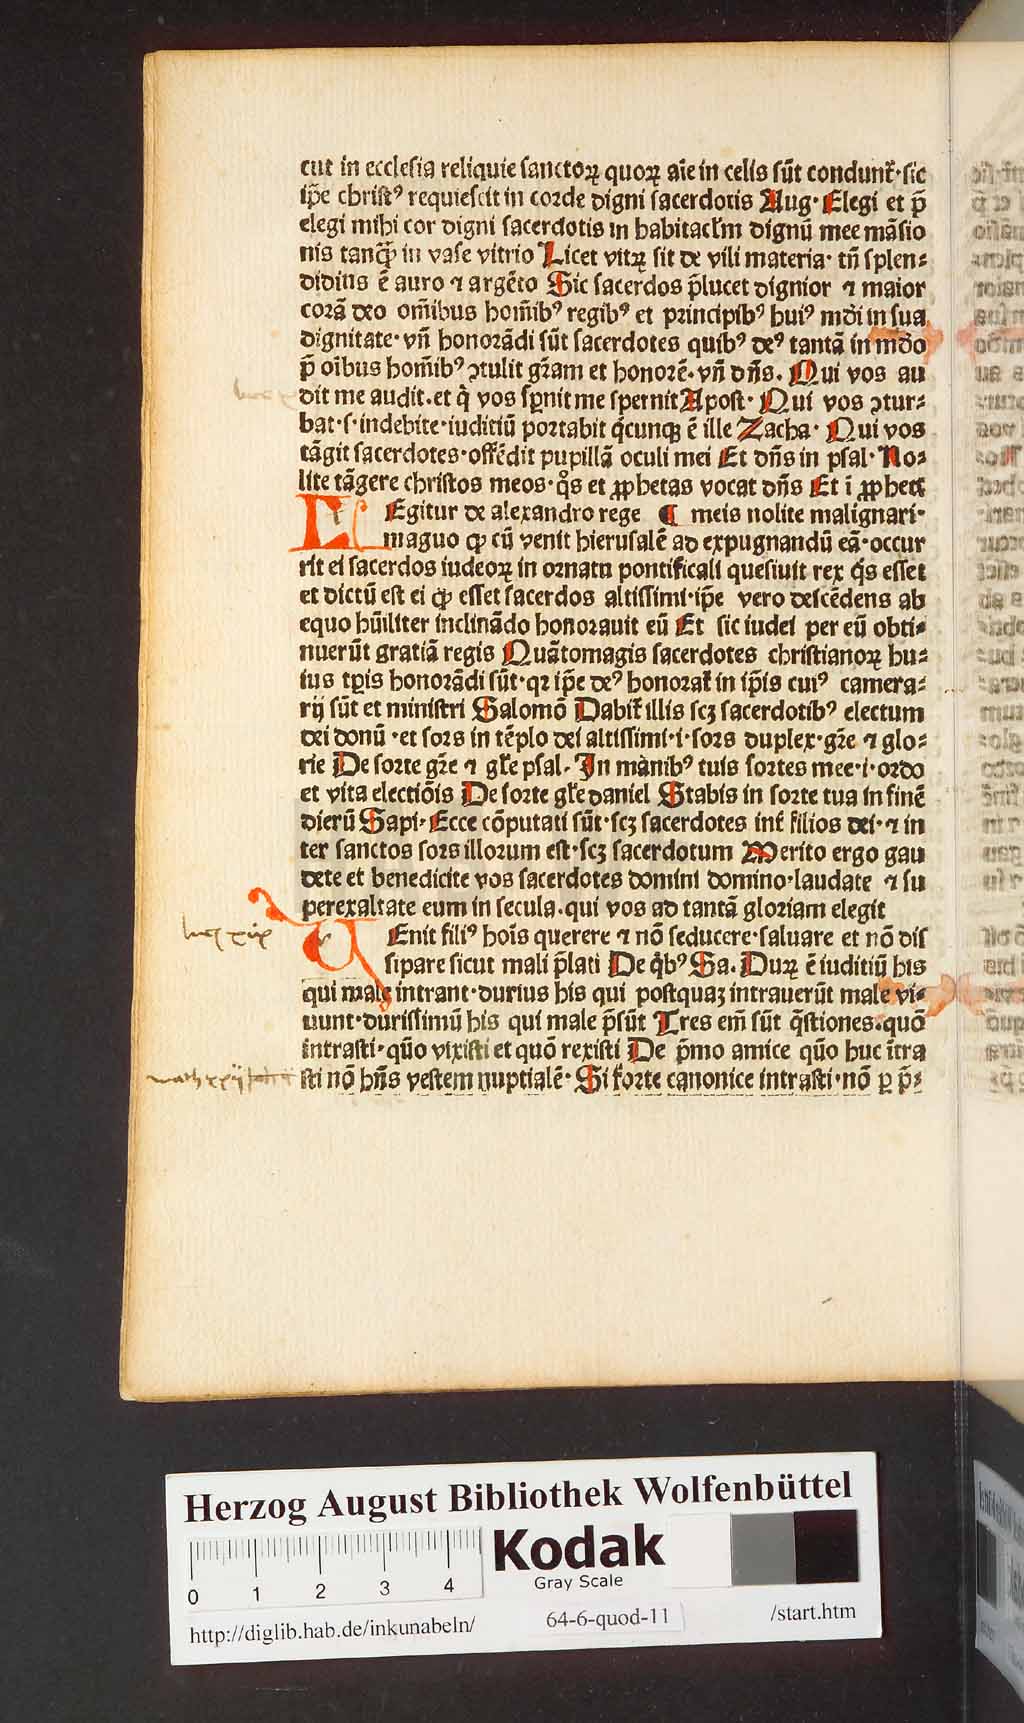 cut in ecclesia reliquie sanctoꝝ quoꝝ aīe in celis sūt condunt̄·sic
ip̄e christꝰ requiescit in corde digni sacerdotis Aug· Elegi et p̄
elegi mihi cor digni sacerdotis in habitacl̄m dignū mee māsio
nis tanqꝫ̄ in vase vitrio Licet vitꝝ sit de vili materia· tn̄ splen⸗
didius ē auro ⁊ argēto Sic sacerdos p̄lucet dignior ⁊ maior
corā deo om̄ibus hom̄ibꝰ regibꝰ et principibꝰ huiꝰ mōi in sua
dignitate· vn̄ honorādi sūt sacerdotes quibꝰ deꝰ tantā in mōo
p̄ oībus hom̄ibꝰ ↄtulit gr̄am et honorē·vn̄ dn̄s. Qui vos au
dit me audit.et q̇ vos sꝑnit me spernit Apost· Qui vos ↄtur⸗
bat·s·indebite·iuditiū portabit q̇cunqꝫ ē ille Zacha· Qui vos
tāgit sacerdotes·offēdit pupillā oculi mei Et dn̄s in psal· No⸗
lite tāgere christos meos·q̊s et ꝓphetas vocat dn̄s Et ī ꝓphet̄
LEgitur de alexandro rege ¶ meis nolite malignari·
maguo qꝫ cū venit hierusalē ad expugnandū eā·occur
rit ei sacerdos iudeoꝝ in ornatu pontificali quesiuit rex q̇s esset
et dictū est ei qꝫ esset sacerdos altissimi·ip̄e vero descēdens ab
equo hūiliter inclinādo honorauit eū Et sic iudei per eū obti⸗
nuerūt gratiā regis Quātomagis sacerdotes christianoꝝ hu⸗
ius tꝑis honorādi sūt·qꝛ ip̄e deꝰ honorat̄ in ip̄is cuiꝰ camera⸗
rij sūt et ministri Salomō Dabit̄ illis scꝫ sacerdotibꝰ electum
dei donū ·et sors in tēplo dei altissimi·i·sors duplex·gr̄e ⁊ glo⸗
rie De sorte gr̄e ⁊ gl̄e psal· In manibꝰ tuis sortes mee·i·ordo
et vita electiōis De sorte gl̄e daniel Stabis in sorte tua in finē
dierū Sapi· Ecce cōputati sūt·scꝫ sacerdotes int̄ filios dei·⁊ in
ter sanctos sors illorum est·scꝫ sacerdotum Merito ergo gau
dete et benedicite vos sacerdotes domini domino·laudate ⁊ su
perexaltate eum in secula.qui vos ad tantā gloriam elegit
luc xix
VEnit filiꝰ hoīs querere ⁊ nō seducere·saluare et nō dis
sipare sicut mali p̄lati De q̇bꝰ Sa. Duꝝ ē iuditiū his
qui male intrant·durius his qui postquaꝫ intrauerūt male vi⸗
uunt·durissimū his qui male p̄sūt Tres em̄ sūt q̄stiones.quō
intrasti·quō vixisti et quō rexisti De p̄mo amice quō huc ītra
math xxij
sti nō hn̄s vestem nuptialē· Si forte canonice intrasti·nō ꝑ p̄⸗
Herzog August Bibliothek Wolfenbüttel
0 1 2 3 4
Kodak
Gray Scale
http://diglib.hab.de/inkunabeln/
64-6-quod-11
/start.htm